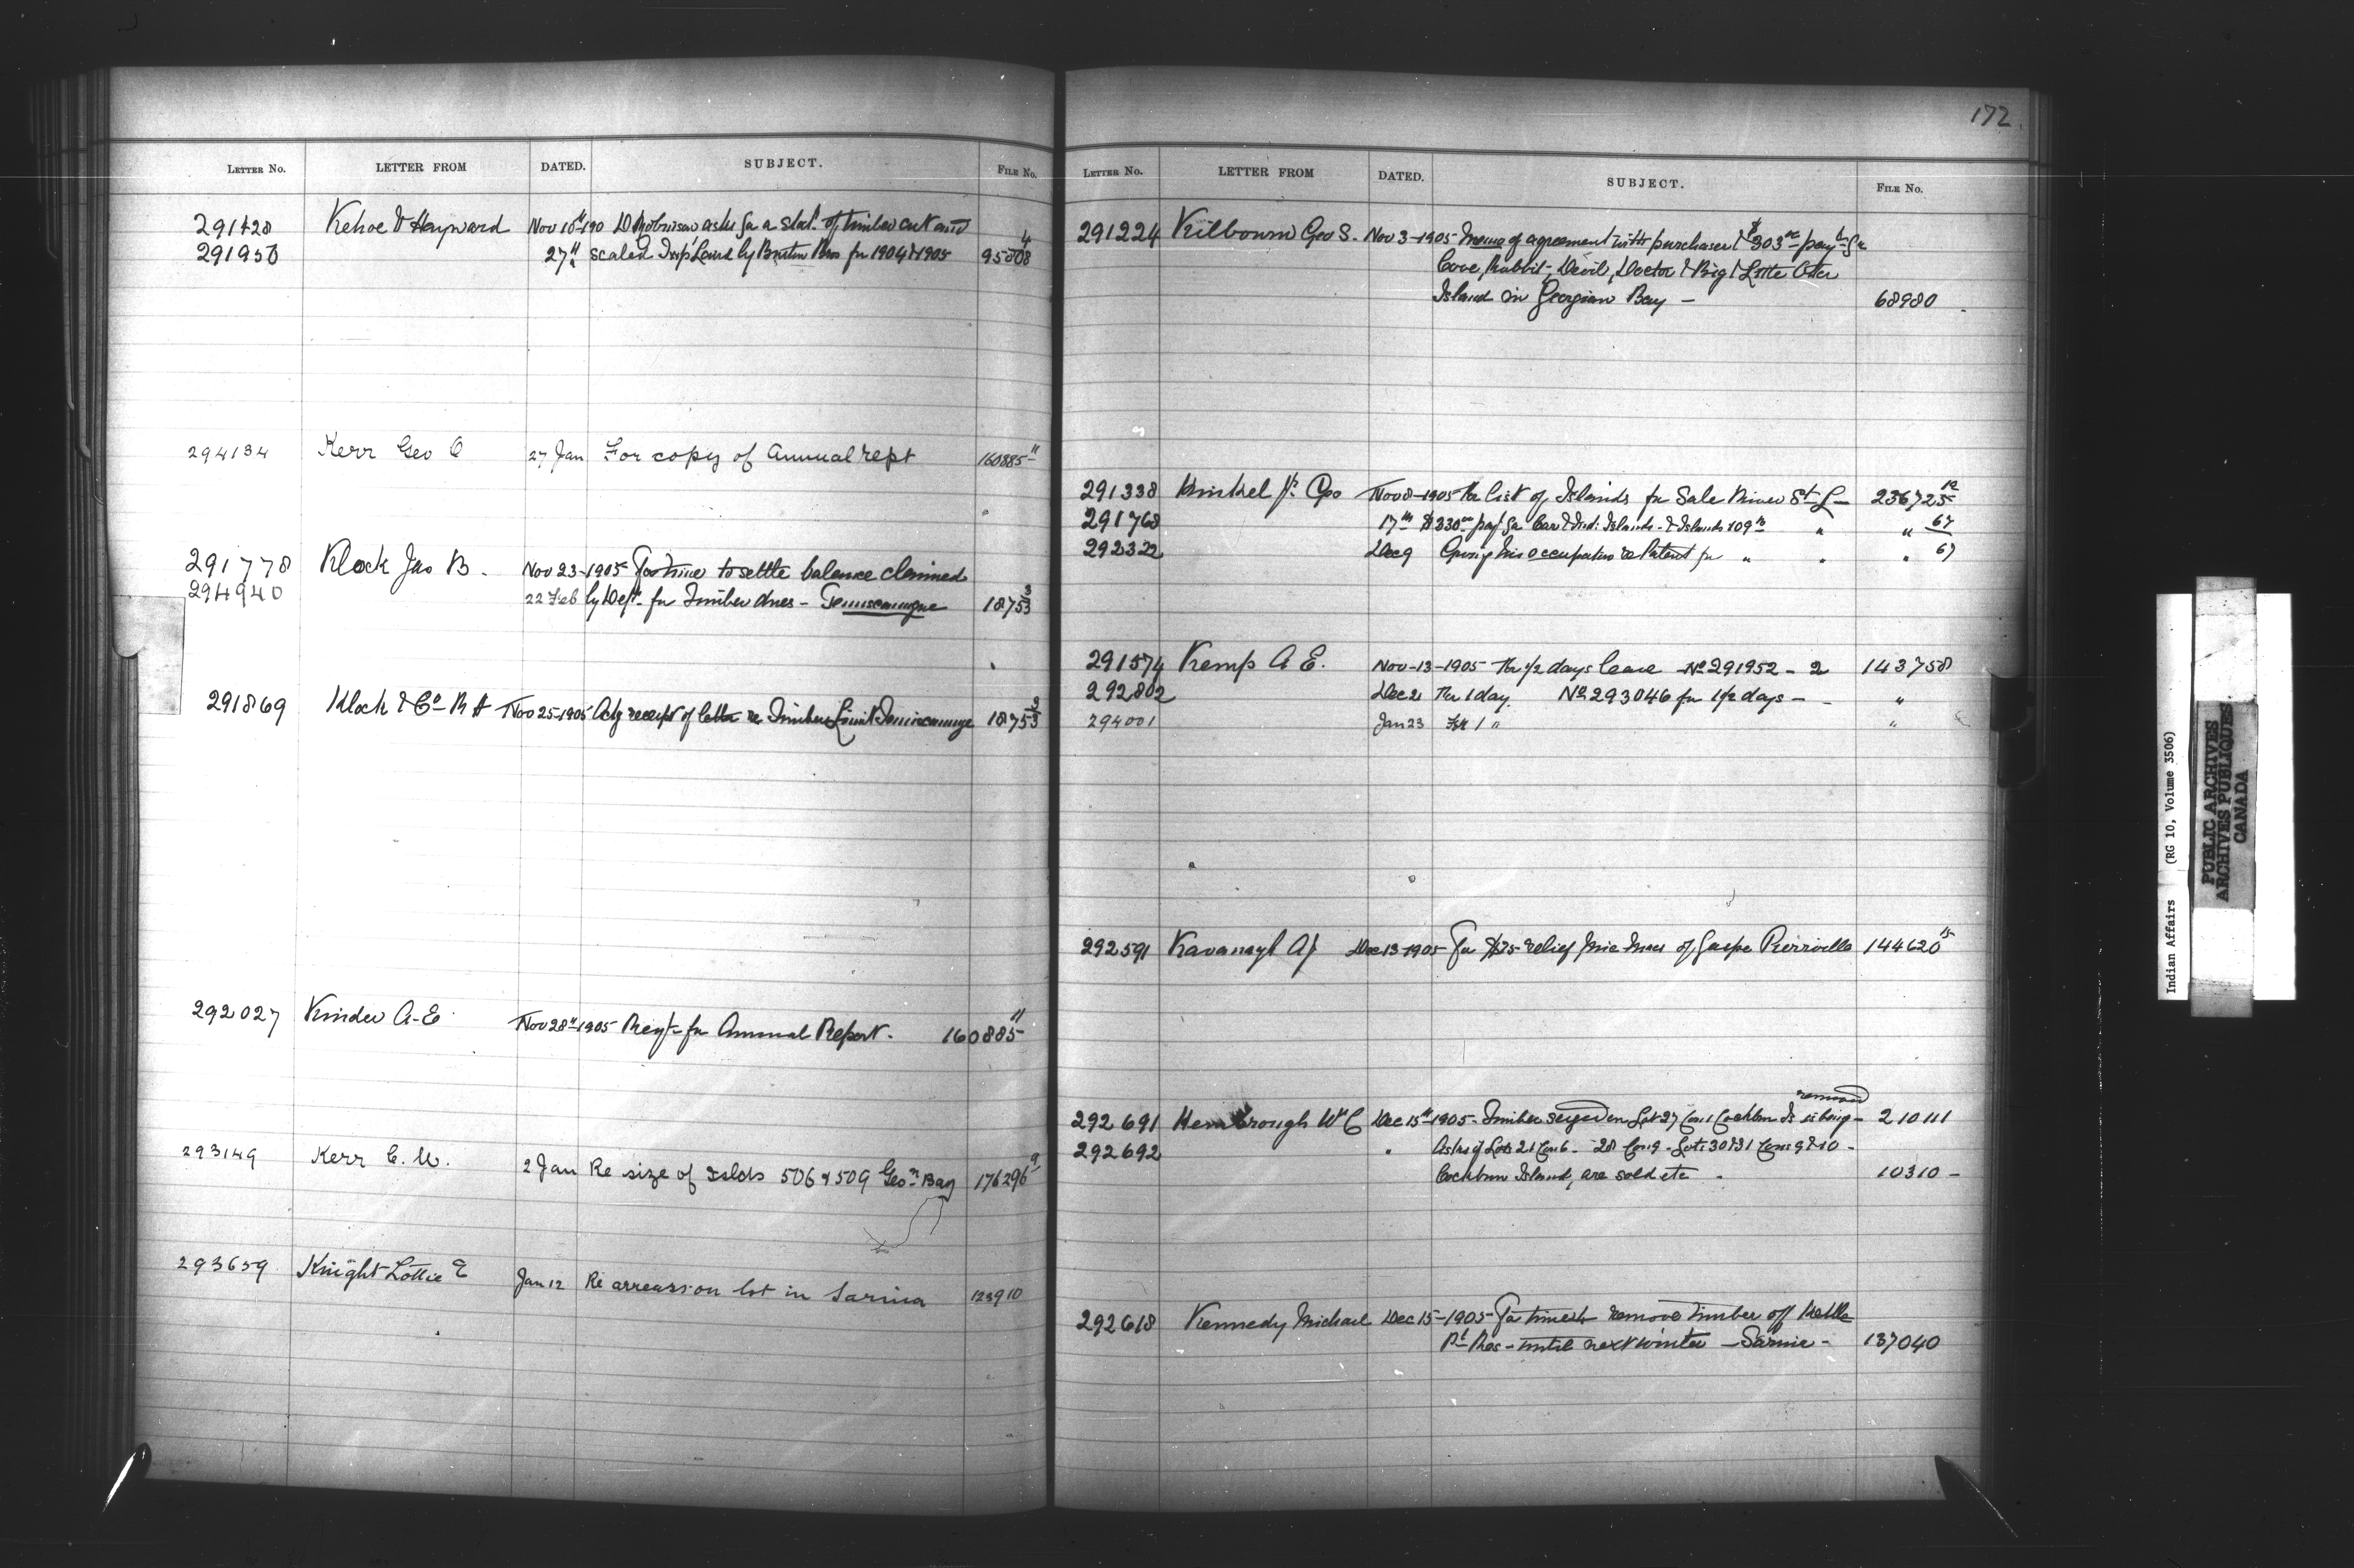 LETTER No. LETTER FROM DATED. SUBJECT. FILE No.
291428 Kehoe & Hayward Nov 10 190 asks for a Stat. of timber cut and
291950 27" scaled Insp' by Bros for 1904 & 1905 95808 4
294134 Kerr Geo 27 Jan For copy of Annual rept 160885 11
291778 Klock Jas B. Nov 23-1905 For time to settle balance claimed
294940 22 Feb by Dept. for Timber dues - Temiscamgue 18753 3
291869 Klock & Co R H Nov 25-1905 Ackg receipt of letter re Timber Limit Temiscamgue 18753 3
292027 Kinder A-E Nov 28"-1905 Reqt- for Annual Report. 160885 11
293149 Kerr C. W. 2 Jan Re size of Islds 506 & 509 Geon Bay 176296 9
293659 Knight Lottie E Jan 12 Re arrears on lot in Sarnia 123910
172.
LETTER No. LETTER FROM DATED. SUBJECT. FILE No.
291224 Kilbourn Geo S. Nov 3-1905 Memo of agreement with purchaser & $303 payt for
Cove, Rabbit, Devil, Doctor & Big & Little Otter
Island in Georgian Bay - 68980
291338 Geo Nov 8-1905 For list of Islands for Sale River St L- 236725 12
291768 17th $330 payt for Islands & Islands 109 " " 67
292322 Dec 9 Giving his occupation re Patent for " " " 67
291574 Kemp A E. Nov-13-1905 For 1/2 days leave - No 291952 - 2 143758
292802 Dec 21 For 1 day. No 293046 for 1/2 days - "
294001 Jan 23 For 1 " "
292591 Kavanagh A J Dec 13-1905 For $25 relief Mic Macs of Gaspe Pierreville 144620 15
removed
292691 W C Dec 15"-1905- Timber seized on Lot 27 Con 1 Cockburn Is is being - 210111
292692 " Asks if Lots 21 Con 6 - 28 Con 9 - Lots 30 & 31 Cons 9 & 10 -
Cockburn Island, are sold etc 10310 -
292618 Kennedy Michael Dec 15-1905- For time to remove timber off Kettle
Pt Res - until next winter - Sarnia - 137040
Indian Affairs (RG 10, Volume 3506)
PUBLIC ARCHIVES
ARCHIVES PUBLIQUES
CANADA